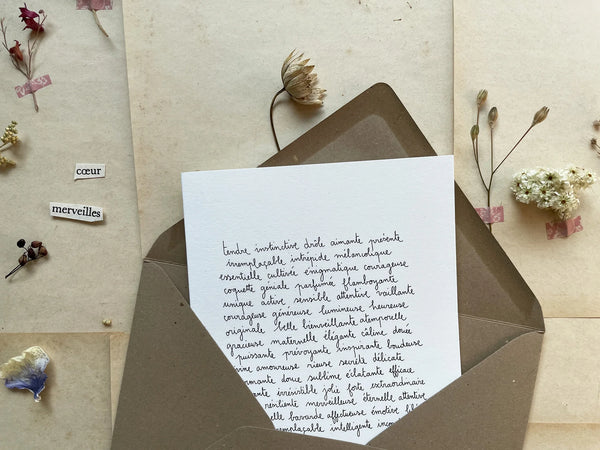 cœur
merveilles
tendre instinctive drôle aimante présente
irremplaçable intrépide mélancolique
essentielle cultivée énigmatique courageuse
coquette géniale parfumée flamboyante
unique active sensible attentive vaillante
courageuse généreuse lumineuse heureuse
originale belle bienveillante atemporelle
gracieuse maternelle élégante câline douée
puissante prévoyante inspirante boudeuse
amoureuse rieuse secrète délicate
douce sublime éclatante efficace
irrésistible jolie forte extraordinaire
résiliente merveilleuse éternelle attentive
bavarde affectueuse émotive
intelligente